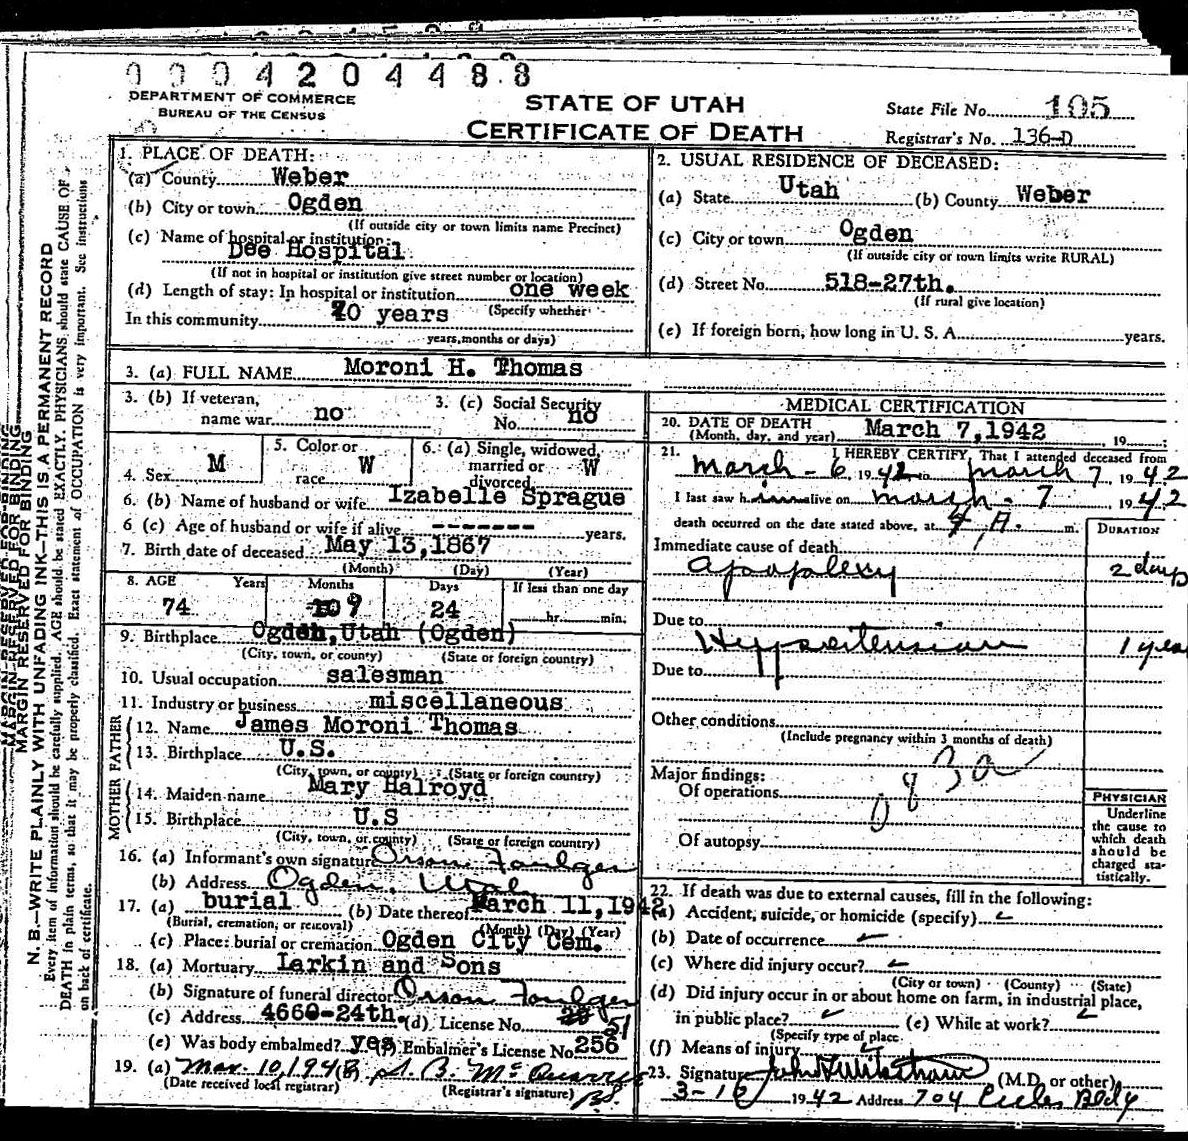 0 0 0 4 2 0 4 4 8 8
DEPARTMENT OF COMMERCE
BUREAU OF THE CENSUS
STATE OF UTAH
CERTIFICATE OF DEATH
State File No. 105
Registrar's No. 136-D
MARGIN RESERVED FOR BINDING
N. B.—WRITE PLAINLY WITH UNFADING INK—THIS IS A PERMANENT RECORD
Every item of information should be carefully supplied. AGE should be stated EXACTLY. PHYSICIANS should state CAUSE OF
DEATH in plain terms, so that it may be properly classified. Exact statement of OCCUPATION is very important. See instructions
on back of certificate.
1. PLACE OF DEATH:
(a) County Weber
(b) City or town Ogden
(If outside city or town limits name Precinct)
(c) Name of hospital or institution:
Dee Hospital
(If not in hospital or institution give street number or location)
(d) Length of stay: In hospital or institution one week
(Specify whether
In this community 70 years
years, months or days)
2. USUAL RESIDENCE OF DECEASED:
(a) State Utah (b) County Weber
(c) City or town Ogden
(If outside city or town limits write RURAL)
(d) Street No. 518-27th.
(If rural give location)
(e) If foreign born, how long in U. S. A. years.
3. (a) FULL NAME Moroni H. Thomas
3. (b) If veteran,
name war no
3. (c) Social Security
No. no
4. Sex M
5. Color or
race W
6. (a) Single, widowed,
married or
divorced W
6. (b) Name of husband or wife Izabelle Sprague
6 (c) Age of husband or wife if alive ------- years.
7. Birth date of deceased May 13,1867
(Month) (Day) (Year)
8. AGE Years Months Days If less than one day
74 9 24 hr. min.
9. Birthplace Ogden, Utah (Ogden)
(City, town, or county) (State or foreign country)
10. Usual occupation salesman
11. Industry or business miscellaneous
FATHER
12. Name James Moroni Thomas
13. Birthplace U.S.
(City, town, or county) (State or foreign country)
MOTHER
14. Maiden name Mary Halroyd
15. Birthplace U.S
(City, town, or county) (State or foreign country)
16. (a) Informant's own signature Orson Foulger
(b) Address Ogden, Utah
17. (a) burial (b) Date thereof March 11,1942
(Burial, cremation, or removal) (Month) (Day) (Year)
(c) Place: burial or cremation Ogden City Cem.
18. (a) Mortuary Larkin and Sons
(b) Signature of funeral director Orson Foulger
(c) Address 4660-24th. (d) License No. 51
(e) Was body embalmed? yes (f) Embalmer's License No 256
19. (a) Mar. 10, 1942
(Date received local registrar) (Registrar's signature)
MEDICAL CERTIFICATION
20. DATE OF DEATH
(Month, day, and year) March 7,1942, 19 ;
21. I HEREBY CERTIFY, That I attended deceased from
march - 6, 1942 to march 7, 1942
I last saw him alive on march - 7, 1942
death occurred on the date stated above, at 4 A. m.
DURATION
Immediate cause of death
Apoplexy 2 days
Due to
Hypertension 1 year
Due to
Other conditions
(Include pregnancy within 3 months of death)
Major findings:
Of operations
083a
Of autopsy
PHYSICIAN
Underline
the cause to
which death
should be
charged sta-
tistically.
22. If death was due to external causes, fill in the following:
(a) Accident, suicide, or homicide (specify)
(b) Date of occurrence
(c) Where did injury occur?
(City or town) (County) (State)
(d) Did injury occur in or about home on farm, in industrial place,
in public place? (e) While at work?
(Specify type of place
(f) Means of injury
23. Signature (M.D. or other)
3-10 1942 Address 704 Eccles Bldg